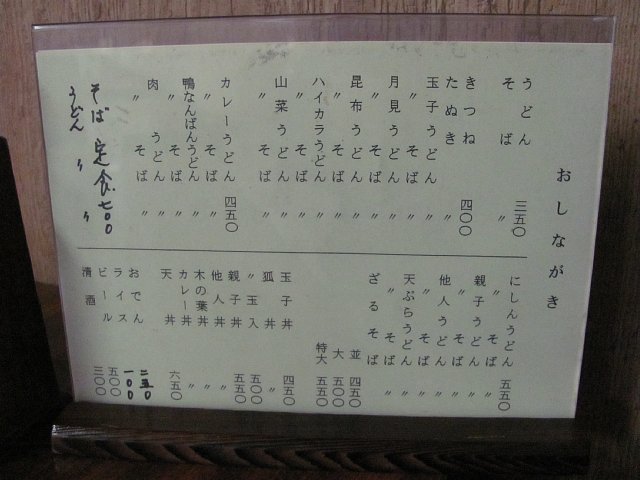 おしながき
うどん 三五〇
そば 〃
きつね 四〇〇
たぬき 〃
玉子うどん 〃
〃 そば 〃
月見うどん 〃
〃 そば 〃
昆布うどん 〃
〃 そば 〃
ハイカラうどん 〃
〃 そば 〃
山菜うどん 〃
〃 そば 〃
カレーうどん 四五〇
〃 そば 〃
鴨なんばんうどん 〃
〃 そば 〃
肉うどん 〃
〃 そば 〃
そば 定食 七〇〇
うどん 〃 〃
にしんうどん 五五〇
〃 そば 〃
親子うどん 〃
〃 そば 〃
他人うどん 〃
〃 そば 〃
天ぷらうどん 〃
〃 そば 〃
ざるそば
並 四五〇
大 五〇〇
特大 五五〇
玉子丼 四五〇
狐丼 〃
〃 玉入 五〇〇
親子丼 五五〇
他人丼 〃
木の葉丼 〃
カレー丼 〃
天丼 六五〇
おでん 二五〇
ライス 一〇〇
ビール 五〇〇
清酒 三〇〇